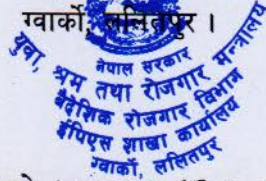 ग्वार्को, ललितपुर ।
नेपाल सरकार
युवा, श्रम तथा रोजगार मन्त्रालय
वैदेशिक रोजगार विभाग
ईपिएस शाखा कार्यालय
ग्वार्को, ललितपुर